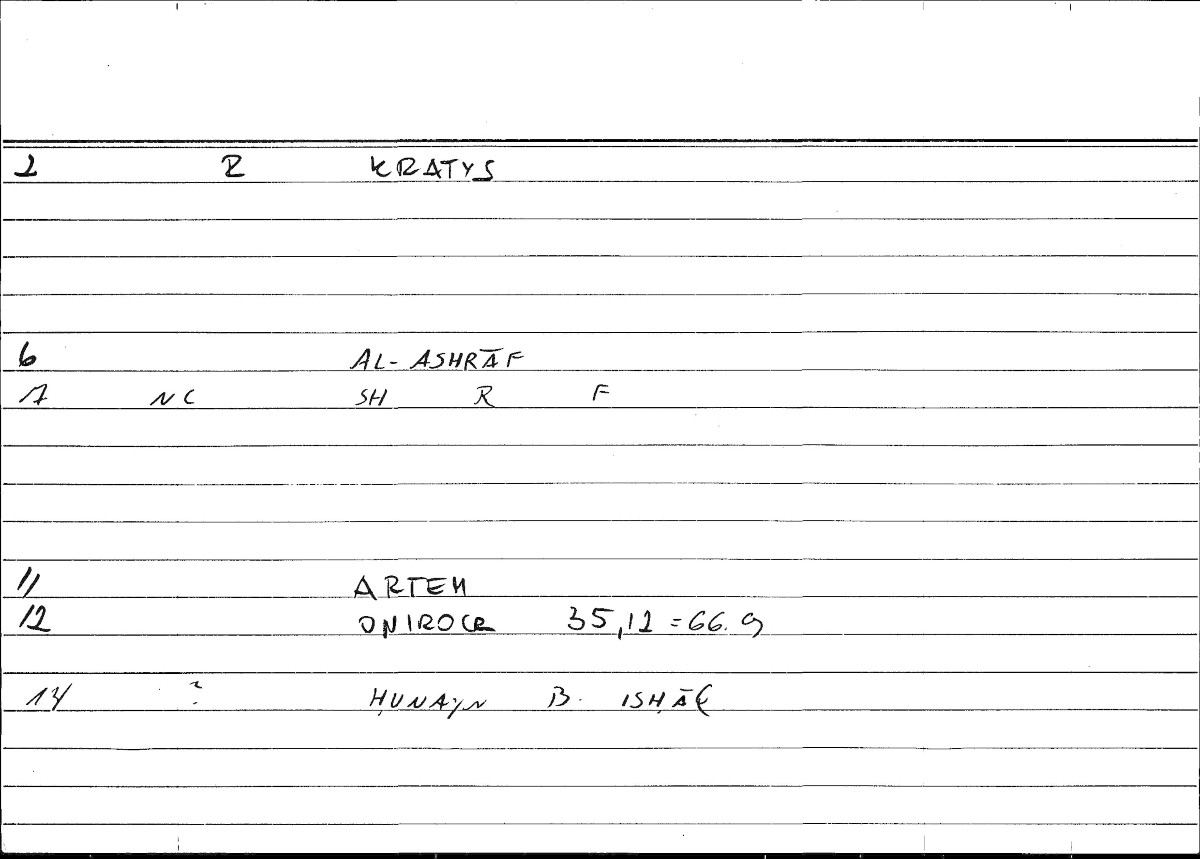 2 R KRATYS
6 AL-ASHRĀF
A NC SH R F
11 ARTEM
12 ONIROCR 35,12 = 66.9
14 ? ḤUNAYN B. ISḤĀḲ